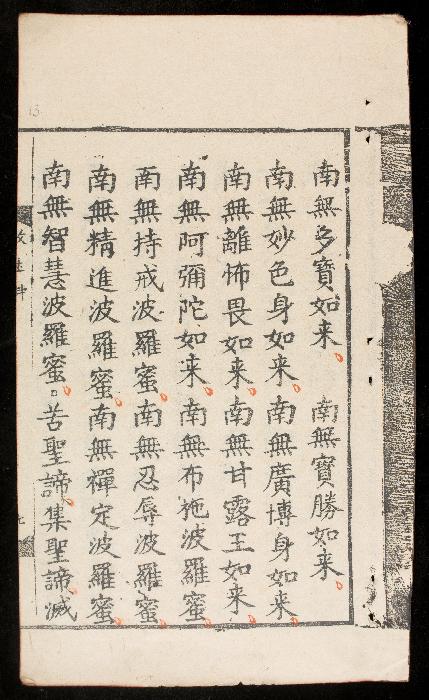 南無多寶如来　南無寶勝如来
南無妙色身如来南無廣博身如来
南無離怖畏如来南無甘露王如来
南無阿彌陀如来南無布施波羅蜜
南無持戒波羅蜜南無忍辱波羅蜜
南無精進波羅蜜南無禪定波羅蜜
南無智慧波羅蜜。苦聖諦集聖諦滅
13